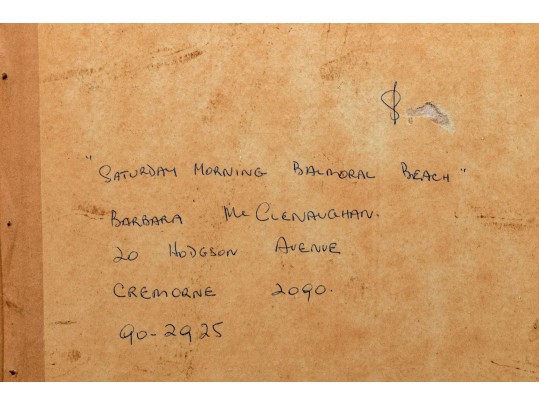 $.
"SATURDAY MORNING BALMORAL BEACH"
BARBARA McCLENAUGHAN.
20 HODGSON AVENUE
CREMORNE 2090.
90-2925